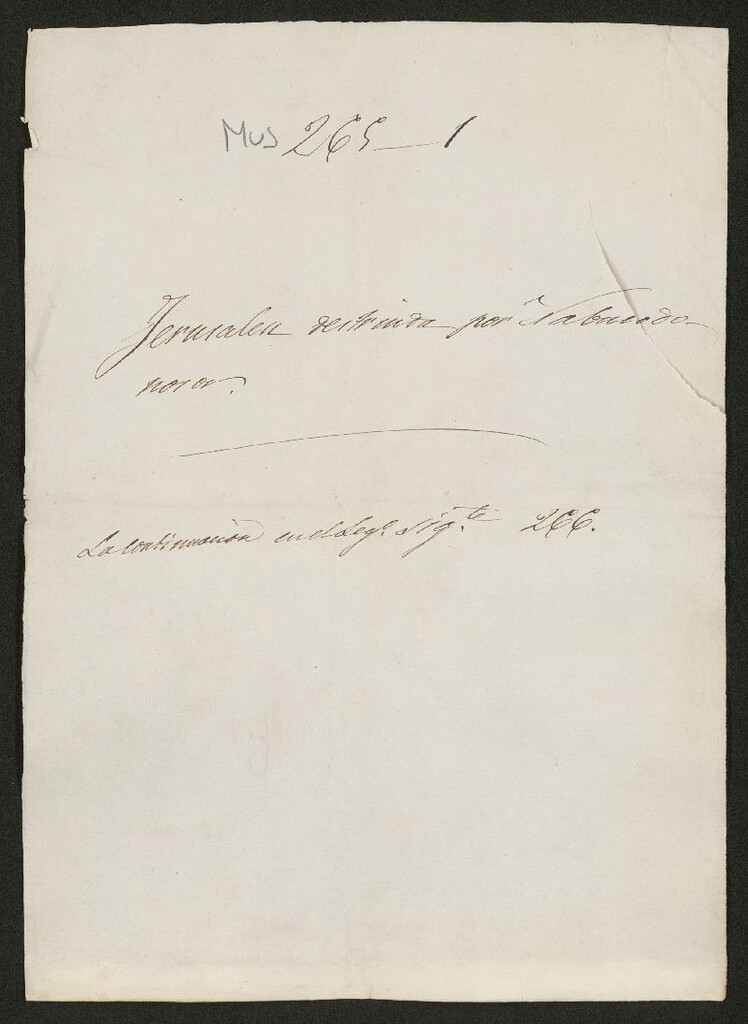 Mus 265-1
Jerusalen destruida por Nabucodo-
nosor.
La continuacion en el Leg.o sig.te 266.